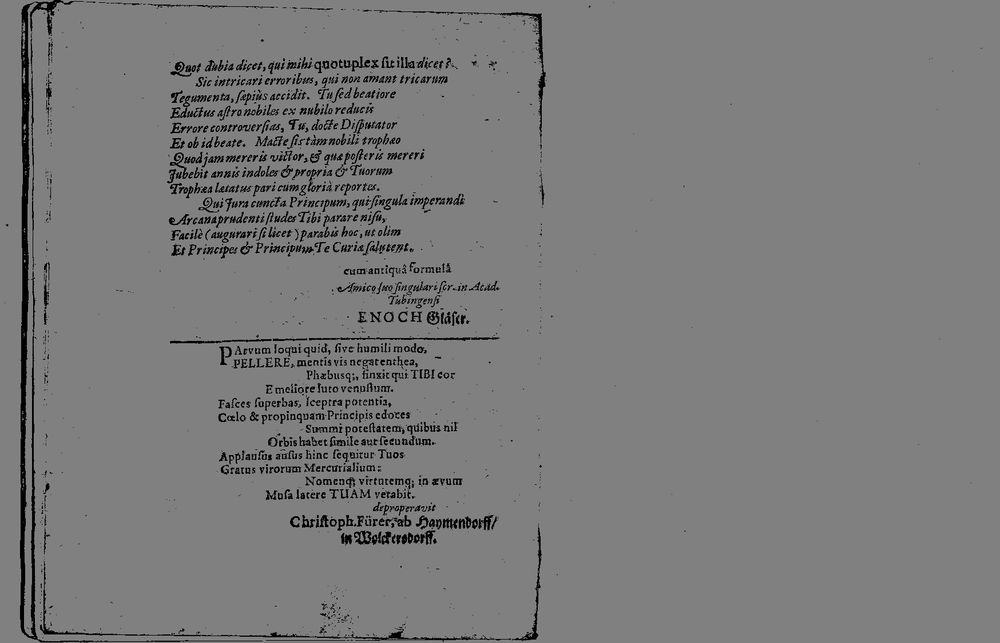 Quot dubia dicet, qui mihi quotuplex sit illa dicet?
Sic intricari erroribus, qui non amant tricarum
Tegumenta, sæpiùs accidit. Tu sed beatiore
Eductus astro nobiles ex nubilo reducis
Errore controversias, Tu, docte Disputator
Et ob id beate. Macte sis tàm nobili trophæo
Quod jam mereris victor, & quæ posteris mereri
Jubebit annis indoles & propria & Tuorum
Trophæa lætatus pari cum gloriâ reportes.
Qui Jura cuncta Principum, qui singula imperandi
Arcana prudenti studes Tibi parare nisu,
Facilè (augurari si licet) parabis hoc, ut olim
Et Principes & Principum Te Curiæ salutent.
cum antiquâ formulâ
Amico suo singulari scr. in Acad.
Tubingensi
ENOCH Gläser.
PArvum loqui quid, sive humili modo,
PELLERE, mentis vis negat enthea,
Phæbusq;, finxit qui TIBI cor
E meliore luto venustum.
Fasces superbas, sceptra potentia,
Cœlo & propinquam Principis edoces
Summi potestatem, quibus nil
Orbis habet simile aut secundum.
Applausus ausus hinc sequitur Tuos
Gratus virorum Mercurialium:
Nomenq; virtutemq; in ævum
Musa latere TUAM vetabit.
deproperavit
Christoph. Fürer, ab Haymendorff/
in Wolckersdorff.